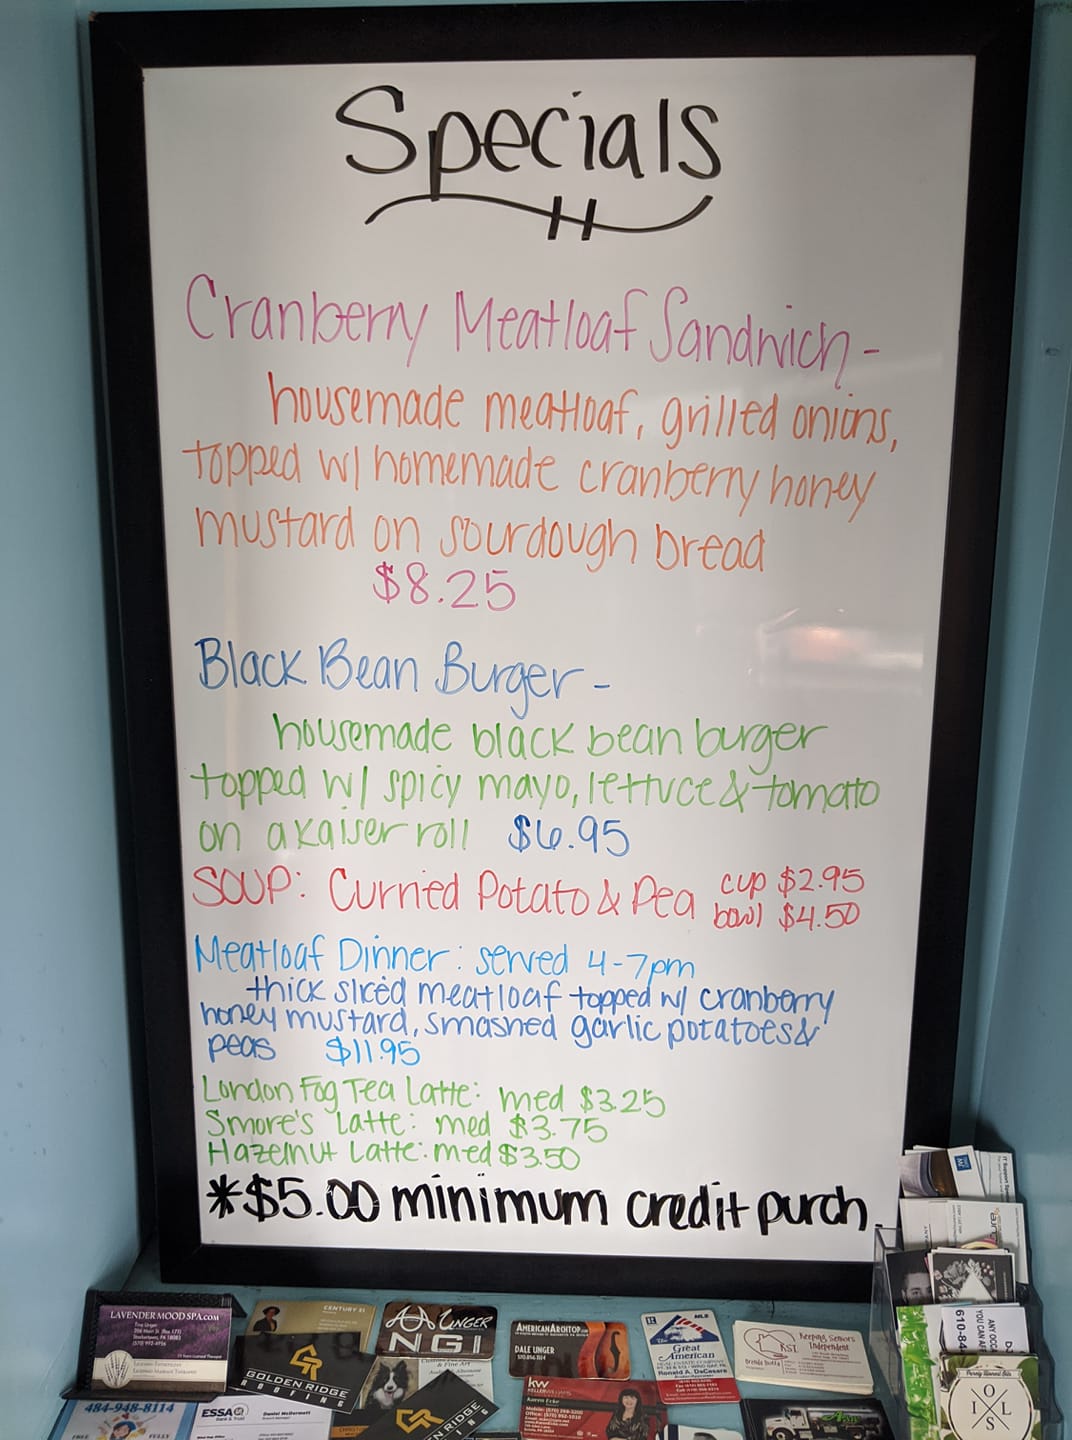 Specials
Cranberry Meatloaf Sandwich -
housemade meatloaf, grilled onions,
topped w/ homemade cranberry honey
mustard on sourdough bread
$8.25
Black Bean Burger -
housemade black bean burger
topped w/ spicy mayo, lettuce & tomato
on a kaiser roll $6.95
SOUP: Curried Potato & Pea cup $2.95
bowl $4.50
Meatloaf Dinner: served 4-7pm
thick sliced meatloaf topped w/ cranberry
honey mustard, smashed garlic potatoes &
peas $11.95
London Fog Tea Latte: med $3.25
Smore's Latte: med $3.75
Hazelnut Latte: med $3.50
*$5.00 minimum credit purch.
LAVENDERMOODSPA.COM
CENTURY 21
UNGER
NGI
GOLDEN RIDGE
ROOFING
AMERICANARCHTOP.COM
DALE UNGER
Great
American
Ronald A. DeCesare
Keeping Seniors
Independent
RSI
kw
484-948-8114
ESSA
Bank & Trust
Daniel McDermott
610-84
OILS